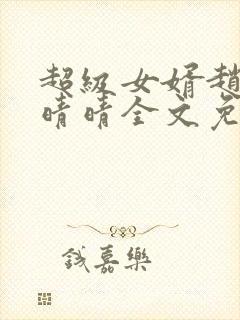 超級女婿趙
晴晴全文免
錢嘉樂